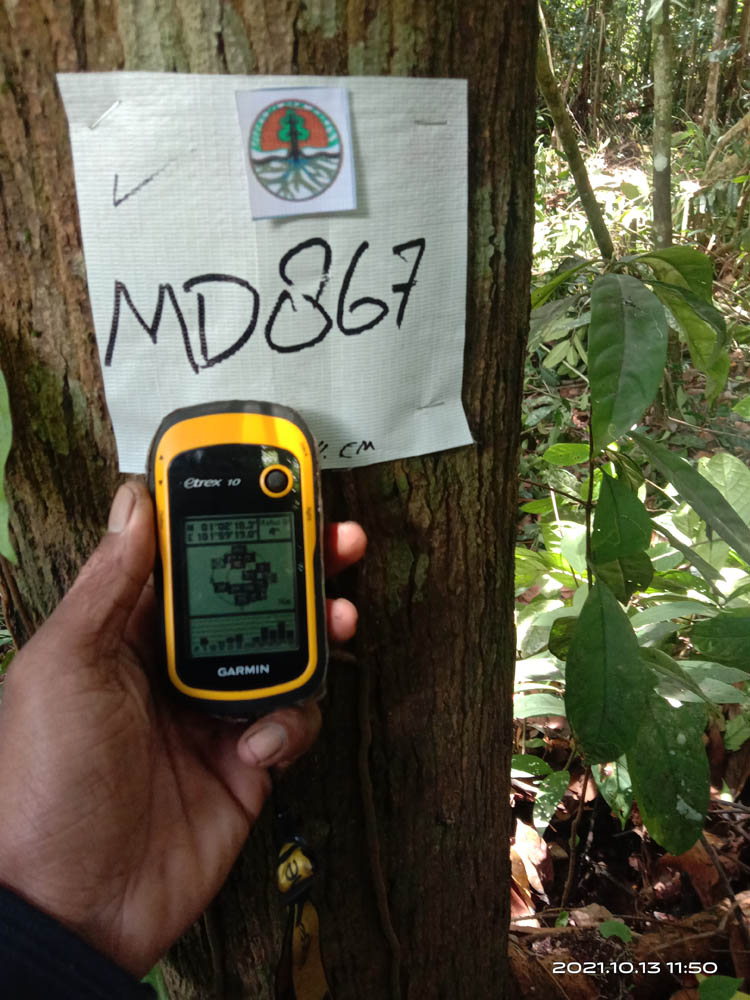 MD867
CM
etrex 10
N 01°02'18.3"
E 101°59'19.0"
GARMIN
2021.10.13 11:50